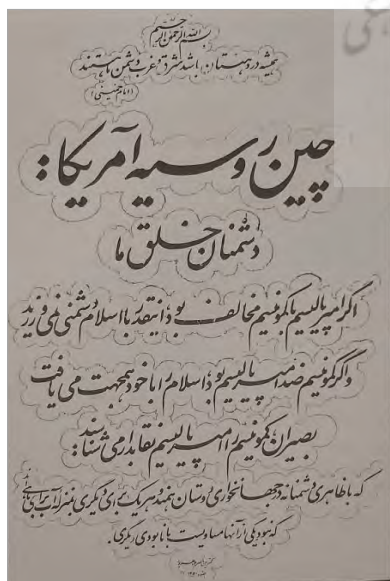 بسم الله الرحمن الرحیم
همیشه در ذهنتان باشد شرق و غرب دشمن ما هستند
(امام خمینی)
چین روسیه آمریکا:
دشمنان خلق ما
اگر امپریالیسم با کمونیسم مخالف بود اینقدر با اسلام دشمنی نمی ورزید
و اگر کمونیسم ضد امپریالیسم بود اسلام را با خود همجهت می یافت
بصیران کمونیسم را امپریالیسم نقابدار می شناسند:
که با ظاهری دشمنانه در جهانخواری دوستان همند هر یک برای دیگری بمنزله آب برای
که نبود یکی از آنها مساویست با نابودی دیگری.